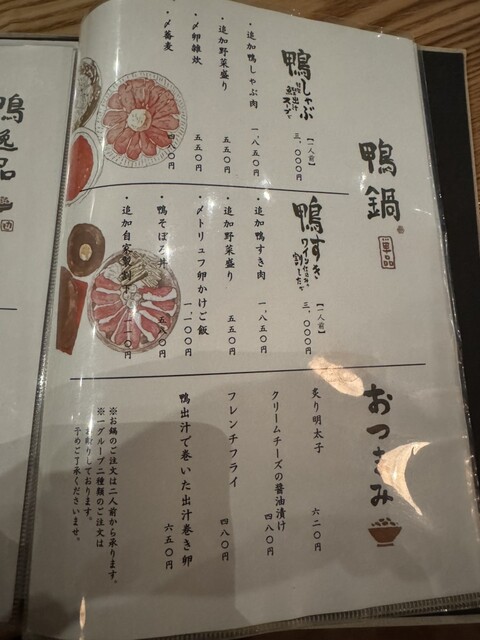 鴨鍋
単品
鴨しゃぶ
【一人前】
三、〇〇〇円
・追加鴨しゃぶ肉
一、八五〇円
・追加野菜盛り
五五〇円
・〆卵雑炊
五五〇円
・〆蕎麦
四八〇円
鴨すき
【一人前】
三、〇〇〇円
・追加鴨すき肉
一、八五〇円
・追加野菜盛り
五五〇円
・〆トリュフ卵かけご飯
一、一〇〇円
・鴨そぼろ丼
五八〇円
・追加自家製割下
一一〇円
おつまみ
炙り明太子
六二〇円
クリームチーズの醤油漬け
四八〇円
フレンチフライ
四八〇円
鴨出汁で巻いた出汁巻き卵
六五〇円
※お鍋のご注文は二人前から承ります。
※一グループ二種類のご注文は
お断りしております。
予めご了承くださいませ。
鴨逸品